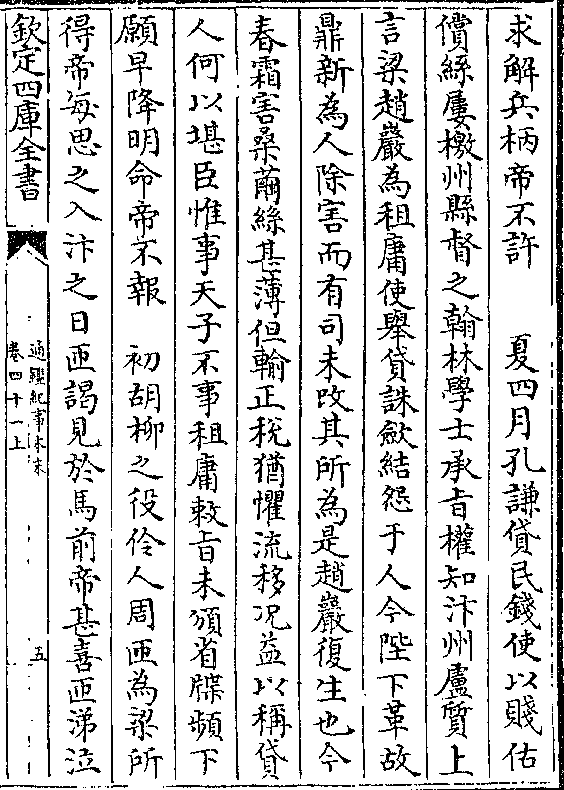 求解兵柄帝不許　夏四月孔謙貸民錢使以賤估
償絲屢檄州縣督之翰林學士承旨權知汴州盧質上
言梁趙巖為租庸使舉貸誅歛結怨于人今陛下革故
鼎新為人除害而有司未改其所為是趙巖復生也今
春霜害桑繭絲甚薄但輸正稅猶懼流移况益以稱貸
人何以堪臣惟事天子不事租庸敕旨未頒省牒頻下
願早降明命帝不報　初胡柳之役伶人周匝為梁所
得帝每思之入汴之日匝謁見於馬前帝甚喜匝涕泣
欽定四庫全書
通鑑紀事本末
卷四十一上
五